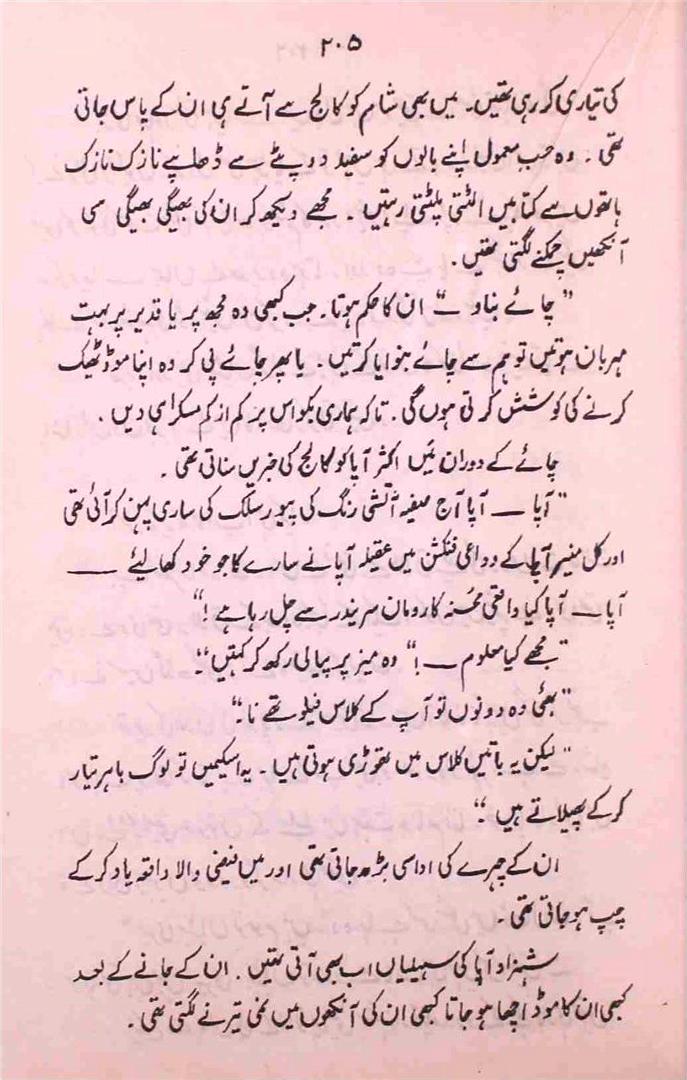 ۲۰۵
کی تیاری کر رہی تھیں۔ میں بھی شام کو کالج سے آتے ہی ان کے پاس جاتی
تھی۔ وہ حسب معمول اپنے بالوں کو سفید دوپٹے سے ڈھلپے نازک نازک
ہاتھوں سے کتابیں الٹتی پلٹتی رہتیں۔ مجھے دیکھ کر ان کی بھیگی بھیگی سی
آنکھیں چمکنے لگتی تھیں۔
”چائے بناو ـــ“ ان کا حکم ہوتا۔ جب کبھی وہ مجھ پر یا قدیر پر بہت
مہربان ہوتیں تو ہم سے چائے بنوایا کرتیں۔ یا پھر چائے پی کر وہ اپنا موڈ ٹھیک
کرنے کی کوشش کرتی ہوں گی۔ تاکہ ہماری بکواس پر کم از کم مسکرا ہی دیں۔
چائے کے دوران میں اکثر آپا کو کالج کی خبریں سناتی تھی۔
”آپا ـــ آپا آج صفیہ آتشی رنگ کی پیور سلک کی ساری پہن کر آئی تھی
اور کل منیر آپا کے وداعی فنکشن میں عقیلہ آپا نے سارے کاجو خود کھا لیئے ـــ
آپا ـــ آپا کیا واقعی محسنہ کا رومان سریندر سے چل رہا ہے!“
”مجھے کیا معلوم ـــ!“ وہ میز پر پیالی رکھ کر کہتیں“۔
”بھئی وہ دونوں تو آپ کے کلاس فیلو تھے نا۔“
”لیکن یہ باتیں کلاس میں تھوڑی ہوتی ہیں۔ یہ اسکیمیں تو لوگ باہر تیار
کر کے پھیلاتے ہیں۔“
ان کے چہرے کی اداسی بڑھ جاتی تھی اور میں فیضی والا واقعہ یاد کر کے
چپ ہو جاتی تھی۔
شہزاد آپا کی سہیلیاں اب بھی آتی تھیں۔ ان کے جانے کے بعد
کبھی ان کا موڈ اچھا ہو جاتا کبھی ان کی آنکھوں میں نمی تیرنے لگتی تھی۔